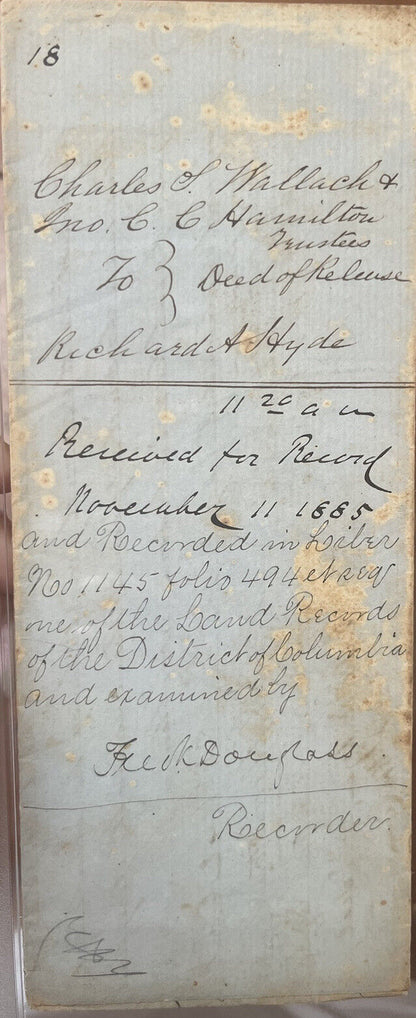 18
Charles S. Wallach &
Jno. C. C Hamilton
Trustees
To } Deed of Release
Richard A Hyde
11 20 a m
Received for Record
November 11 1885
and Recorded in Liber
No. 1145 folio 494 et seq
one of the Land Records
of the District of Columbia
and examined by
Fredk Douglass.
Recorder.